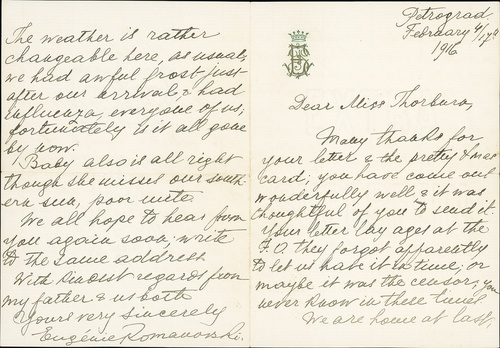 Petrograd,
February 4/17th
1916
Dear Miss Thorburn,
Many thanks for
your letter & the pretty Xmas
card; you have come out
wonderfully well & it was
thoughtful of you to send it.
Your letter lay ages at the
F.O. they forgot apparently
to let us have it in time, or
maybe it was the censor, you
never know in these times
We are home at last,
The weather is rather
changeable here, as usual,
we had awful frost just
after our arrival & had
influenza, everyone of us;
fortunately is it all gone
by now.
Baby also is all right
though she misses our south-
ern sun, poor mite.
We all hope to hear from
you again soon, write
to the same address
With kindest regards from
my father & us both
Yours very sincerely
Eugénie Romanovski.